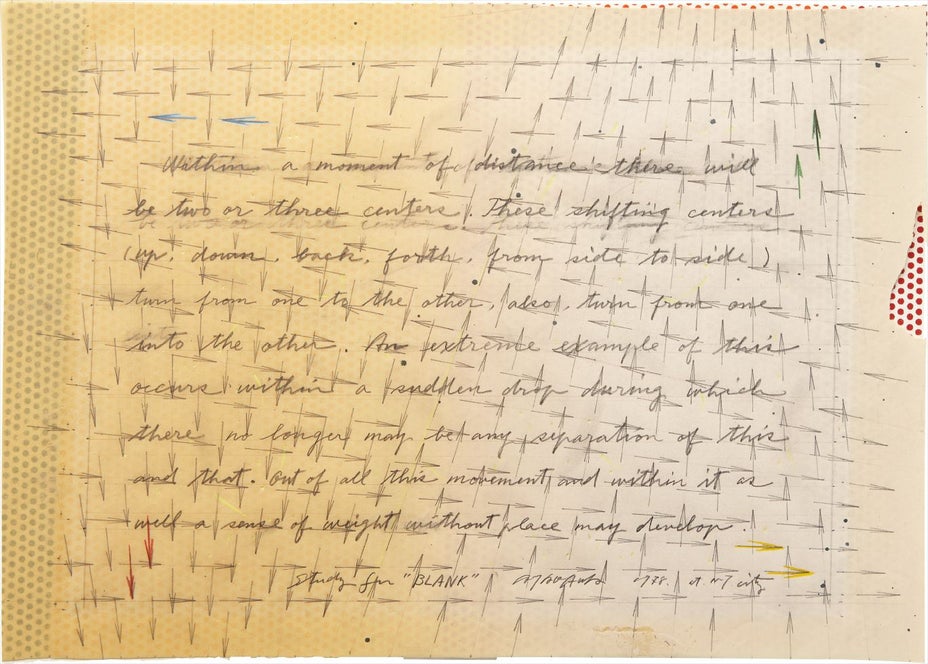 Within a moment of distance there will
be two or three centers. These shifting centers
(up, down, back, forth, from side to side)
turn from one to the other, also, turn from one
into the other. An extreme example of this
occurs within a sudden drop during which
there no longer may be any separation of this
and that. Out of all this movement and within it as
well a sense of weight without place may develop.
Study for "BLANK" at NY city